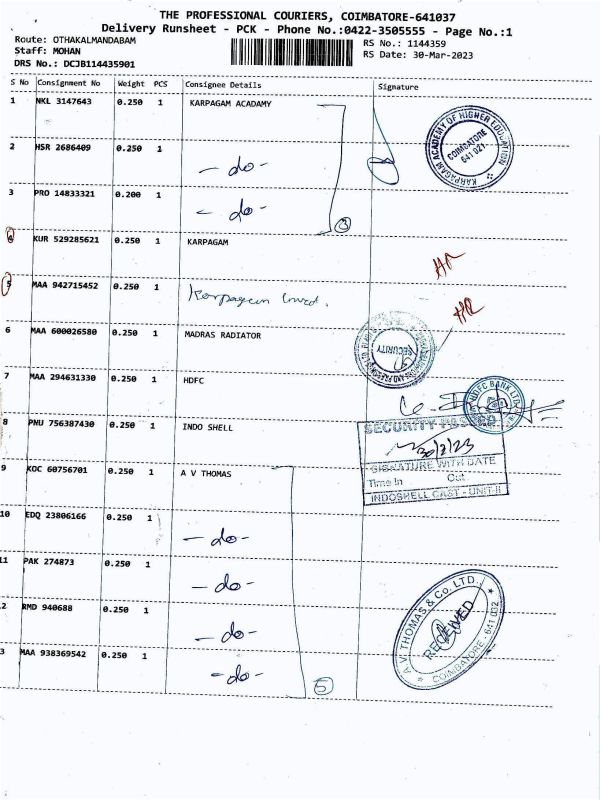 THE PROFESSIONAL COURIERS, COIMBATORE-641037
Delivery Runsheet - PCK - Phone No.:0422-3505555 - Page No.:1
Route: OTHAKALMANDABAM
Staff: MOHAN
DRS No.: DCJB114435901
RS No.: 1144359
RS Date: 30-Mar-2023
S No Consignment No Weight PCS Consignee Details Signature
1 NKL 3147643 0.250 1 KARPAGAM ACADAMY
KARPAGAM ACADEMY OF HIGHER EDUCATION
COIMBATORE
641 021
2 HSR 2686409 0.250 1
- do -
3 PRO 14833321 0.200 1
- do -
3
4 KUR 529285621 0.250 1 KARPAGAM
HR
5 MAA 942715452 0.250 1
Karpagam
HR
6 MAA 600026580 0.250 1 MADRAS RADIATOR
SECURITY
7 MAA 294631330 0.250 1 HDFC
HDFC BANK LTD
8 PNU 756387430 0.250 1 INDO SHELL
SECURITY PASSED
30/3/23
SIGNATURE WITH DATE
Time In Out
INDOSHELL CAST - UNIT-II
9 KOC 60756701 0.250 1 A V THOMAS
10 EDQ 23806166 0.250 1
- do -
11 PAK 274873 0.250 1
- do -
2 RMD 940688 0.250 1
- do -
A.V. THOMAS & Co. LTD.
RECEIVED
COIMBATORE - 641 032
3 MAA 938369542 0.250 1
- do -
5